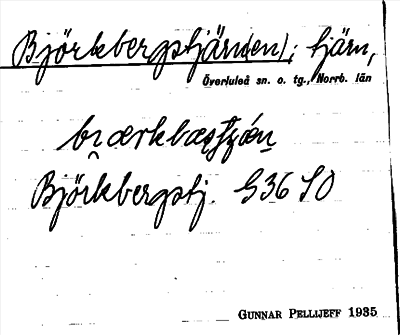 Björkbergstjärn(en); tjärn,
Överluleå sn. o. tg., Norrb. län
Björkbergstj. G36 SO
GUNNAR PELLIJEFF 1935